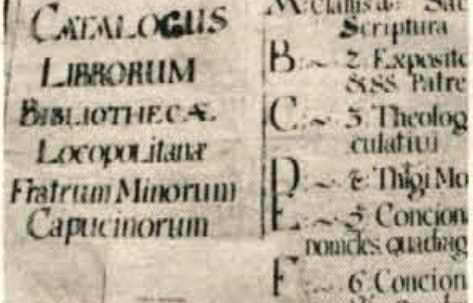 CATALOGUS
LIBRORUM
BIBLIOTHECÆ
Locopolitanæ
Fratrum Minorum
Capucinorum
Scriptura
B:~ 2: Exposito
&SS. Patre
C:~ 3. Theolog
culativi
D ~
E:~ 5 Concion
F:~ 6 Concion